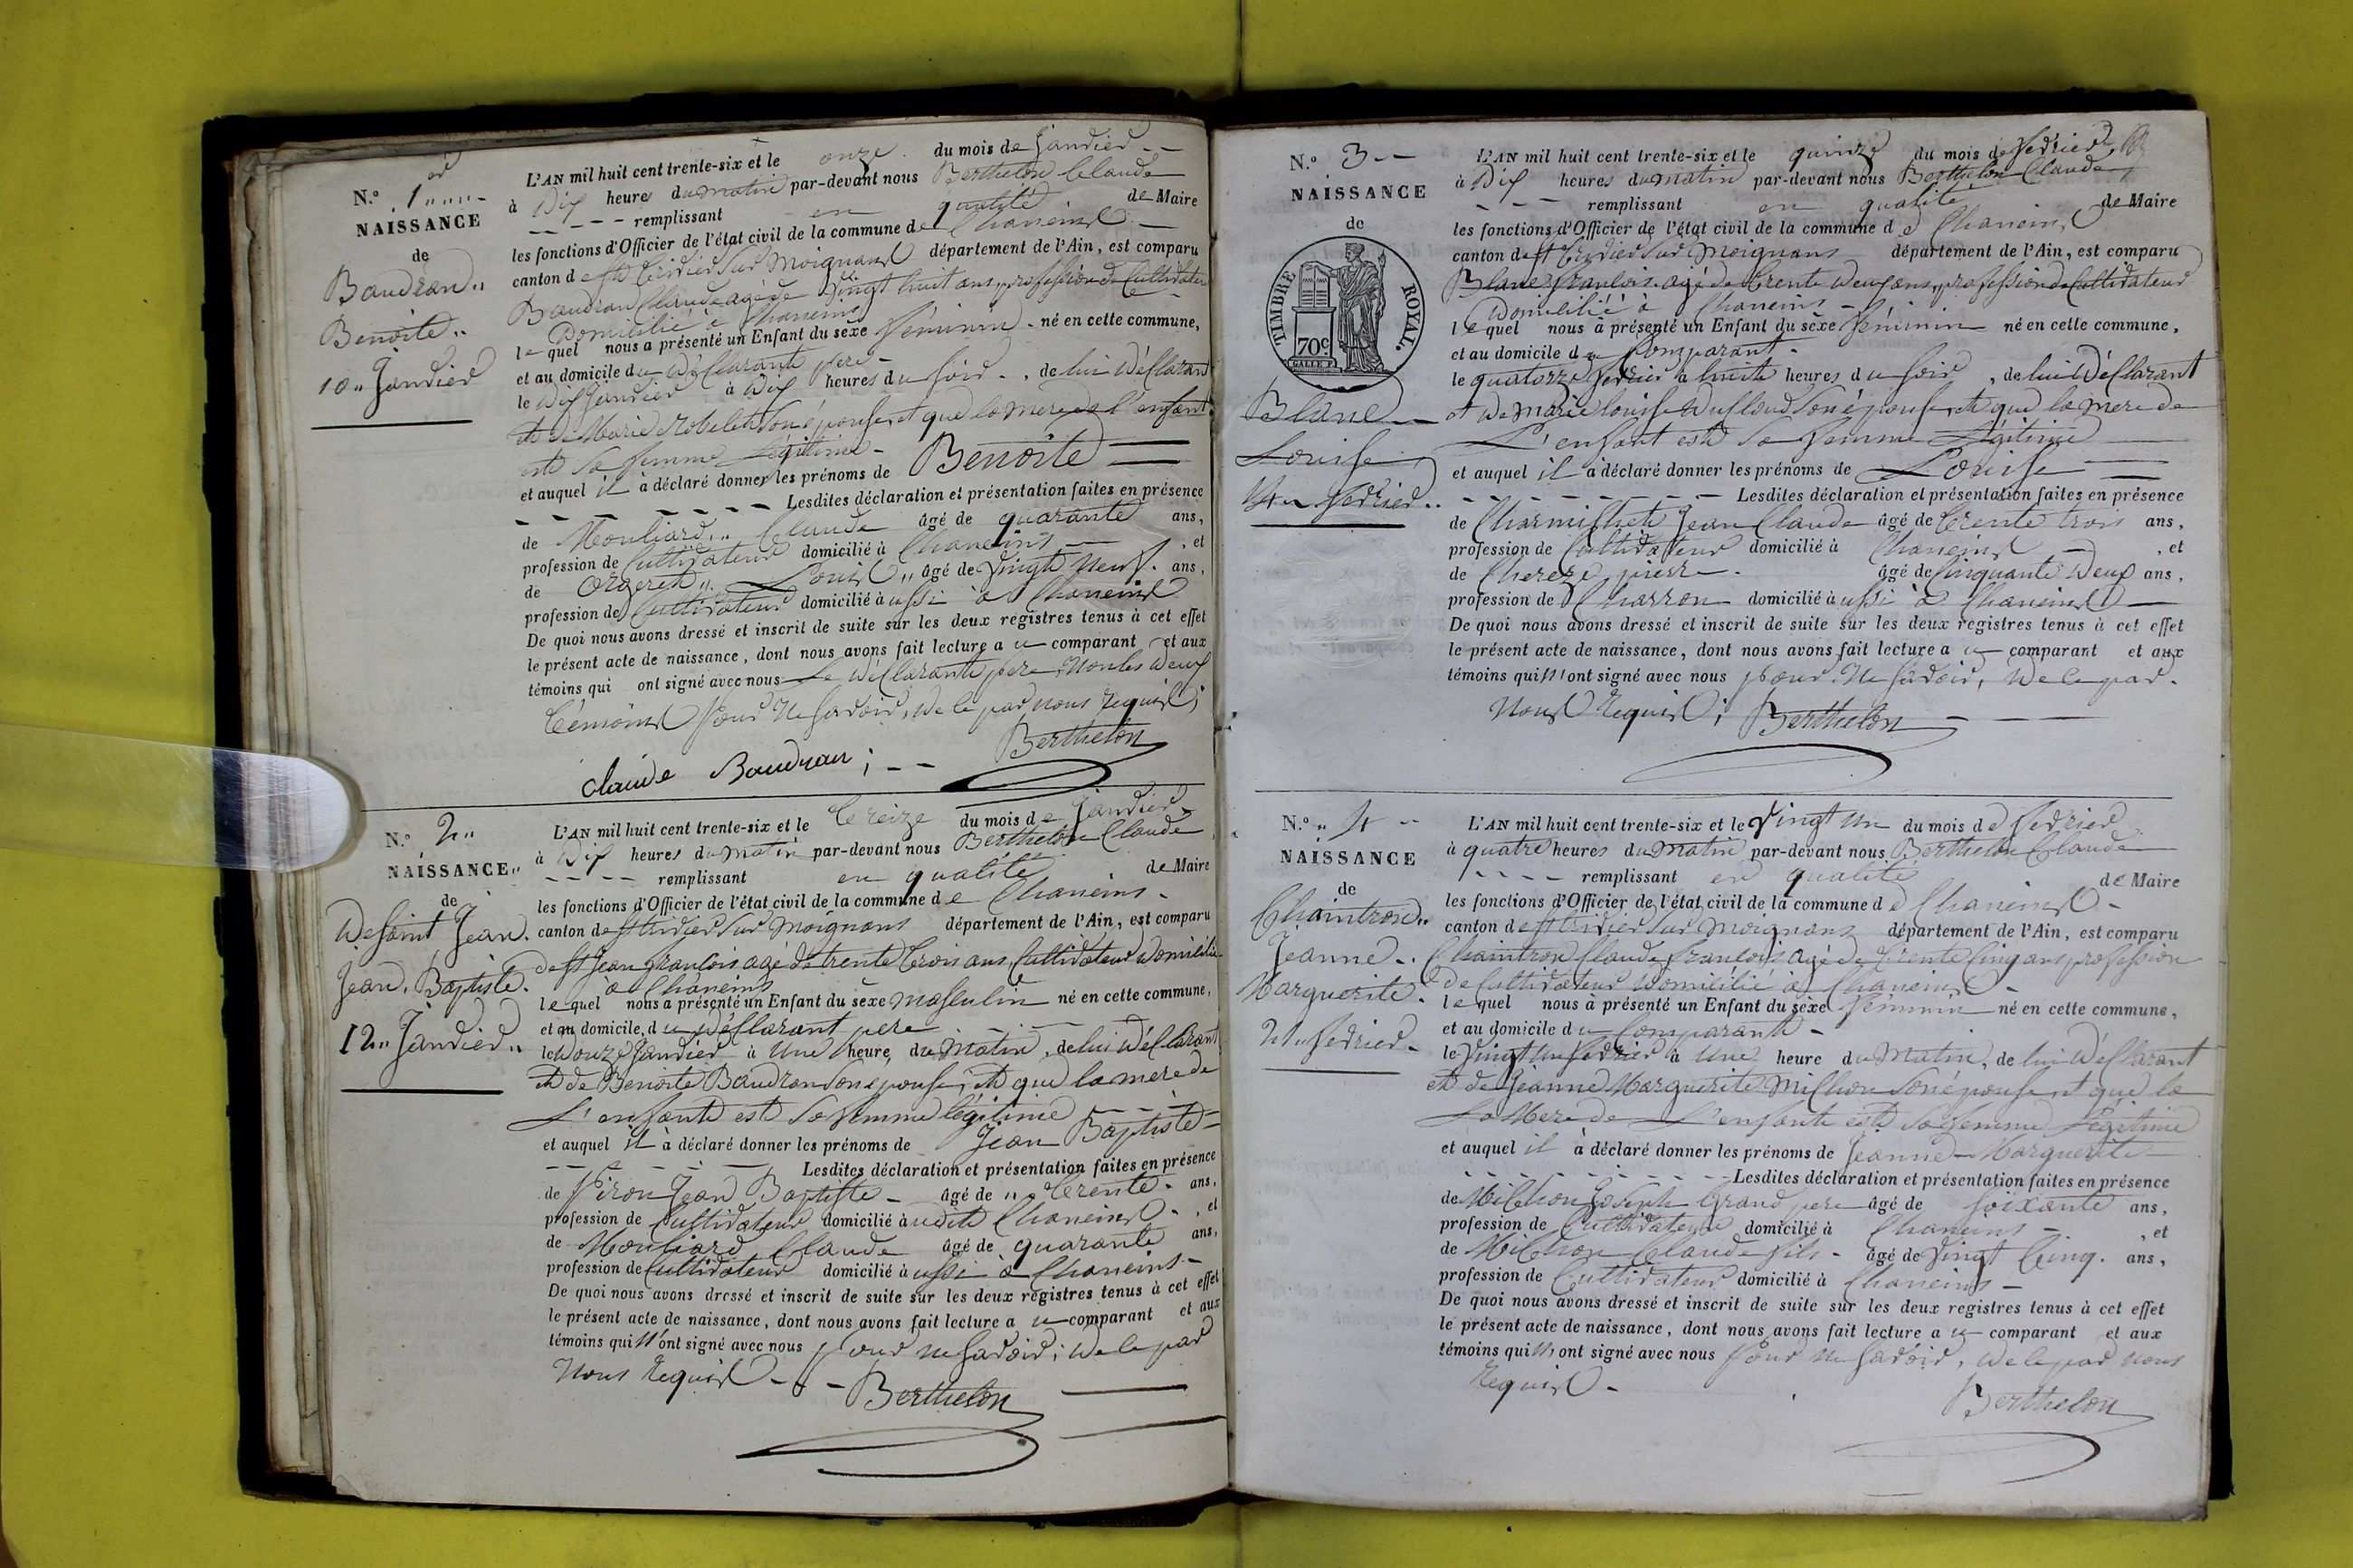 N.º 1er
NAISSANCE
de
Baudran
Benoite
10 Janvier
L'AN mil huit cent trente-six et le onze du mois de Janvier
à Dix heures du matin par-devant nous Berthelon Claude
remplissant en qualité de Maire
les fonctions d'Officier de l'état civil de la commune de Chaneins
canton de St Trivier sur Moignans département de l'Ain, est comparu
Baudran Claude agé de vingt huit ans, profession de Cultivateur
Domicilié à Chaneins
lequel nous a présenté un Enfant du sèxe féminin né en cette commune,
et au domicile du Déclarant père
le dix Janvier à Dix heures du soir, de lui Déclarant
et de Marie son épouse, et que la mere de l'enfant
est sa femme Légitime
et auquel il a déclaré donner les prénoms de Benoite
Lesdites déclaration et présentation faites en présence
de Mouliard Claude âgé de quarante ans,
profession de Cultivateur domicilié à Chaneins, et
de Orgeret Louis âgé de vingt neuf ans,
profession de Cultivateur domicilié aussi à Chaneins
De quoi nous avons dressé et inscrit de suite sur les deux registres tenus à cet effet
le présent acte de naissance, dont nous avons fait lecture au comparant et aux
témoins qui ont signé avec nous Le Déclarant père, non les deux
témoins pour ne savoir, de le par nous requis;
Berthelon
Claude Baudran;
N.º 2
NAISSANCE
de
De saint Jean
Jean Baptiste
12 Janvier
L'AN mil huit cent trente-six et le treize du mois de Janvier
à Dix heures du matin par-devant nous Berthelon Claude
remplissant en qualité de Maire
les fonctions d'Officier de l'état civil de la commune de Chaneins
canton de St Trivier sur Moignans département de l'Ain, est comparu
de St Jean françois agé de trente trois ans, Cultivateur domicilié
à Chaneins
lequel nous a présenté un Enfant du sèxe masculin né en cette commune,
et au domicile du Déclarant pere
le douze Janvier à une heure du Matin, de lui Déclarant
et de Benoite Baudran son épouse; et que la mere de
L'enfant est sa femme légitime
et auquel il à déclaré donner les prénoms de Jean Baptiste
Lesdites déclaration et présentation faites en présence
de Piron Jean Baptiste âgé de trente ans,
profession de Cultivateur domicilié audit Chaneins, et
de Mouliard Claude âgé de quarante ans,
profession de Cultivateur domicilié aussi à Chaneins
De quoi nous avons dressé et inscrit de suite sur les deux registres tenus à cet effet
le présent acte de naissance, dont nous avons fait lecture au comparant et aux
témoins qui n'ont signé avec nous pour ne savoir; de le par
Nous Requis
Berthelon
N.º 3
NAISSANCE
de
TIMBRE ROYAL.
70c
Blanc
Louise
14 fevrier
L'AN mil huit cent trente-six et le quinze du mois de fevrier
à Dix heures du matin par-devant nous Berthelon Claude
remplissant en qualité de Maire
les fonctions d'Officier de l'état civil de la commune de Chaneins
canton de St Trivier sur Moignans département de l'Ain, est comparu
Blanc françois agé de trente deux ans, profession de Cultivateur
Domicilié à Chaneins
lequel nous à présenté un Enfant du sèxe féminin né en cette commune,
et au domicile du Comparant
le quatorze fevrier à huite heures du soir, de lui Déclarant
et de Marie louise son épouse, et que la mere de
L'enfant est sa femme Légitime
et auquel il a déclaré donner les prénoms de Louise
Lesdites déclaration et présentation faites en présence
de Jean Claude âgé de trente trois ans,
profession de Cultivateur domicilié à Chaneins, et
de pierre âgé de Cinquante Deux ans,
profession de Charron domicilié aussi à Chaneins
De quoi nous avons dressé et inscrit de suite sur les deux registres tenus à cet effet
le présent acte de naissance, dont nous avons fait lecture au comparant et aux
témoins qui n'ont signé avec nous pour Ne savoir, de le par
Nous Requis;
Berthelon
N.º 4
NAISSANCE
de
Chaintron
Jeanne
Marguerite
21 fevrier
L'AN mil huit cent trente-six et le vingt un du mois de fevrier
à quatre heures du Matin par-devant nous Berthelon Claude
remplissant en qualité de Maire
les fonctions d'Officier de l'état civil de la commune de Chaneins
canton de St Trivier sur Moignans département de l'Ain, est comparu
Chaintron Claude françois agé de trente Cinq ans profession
de Cultivateur domicilié à Chaneins
lequel nous à présenté un Enfant du sèxe féminin né en cette commune,
et au domicile du Comparant
le vingt un fevrier à une heure du Matin, de lui Déclarant
et de Jeanne Marguerite Milhon son épouse, et que la
La Mere de L'enfant est sa femme Légitime
et auquel il à déclaré donner les prénoms de Jeanne Marguerite
Lesdites déclaration et présentation faites en présence
de Milhon Joseph Grand pere âgé de soixante ans,
profession de Cultivateur domicilié à Chaneins, et
de Milhon Claude fils âgé de vingt Cinq ans,
profession de Cultivateur domicilié à Chaneins
De quoi nous avons dressé et inscrit de suite sur les deux registres tenus à cet effet
le présent acte de naissance, dont nous avons fait lecture au comparant et aux
témoins qui n'ont signé avec nous pour ne savoir, de le par nous
Requis
Berthelon